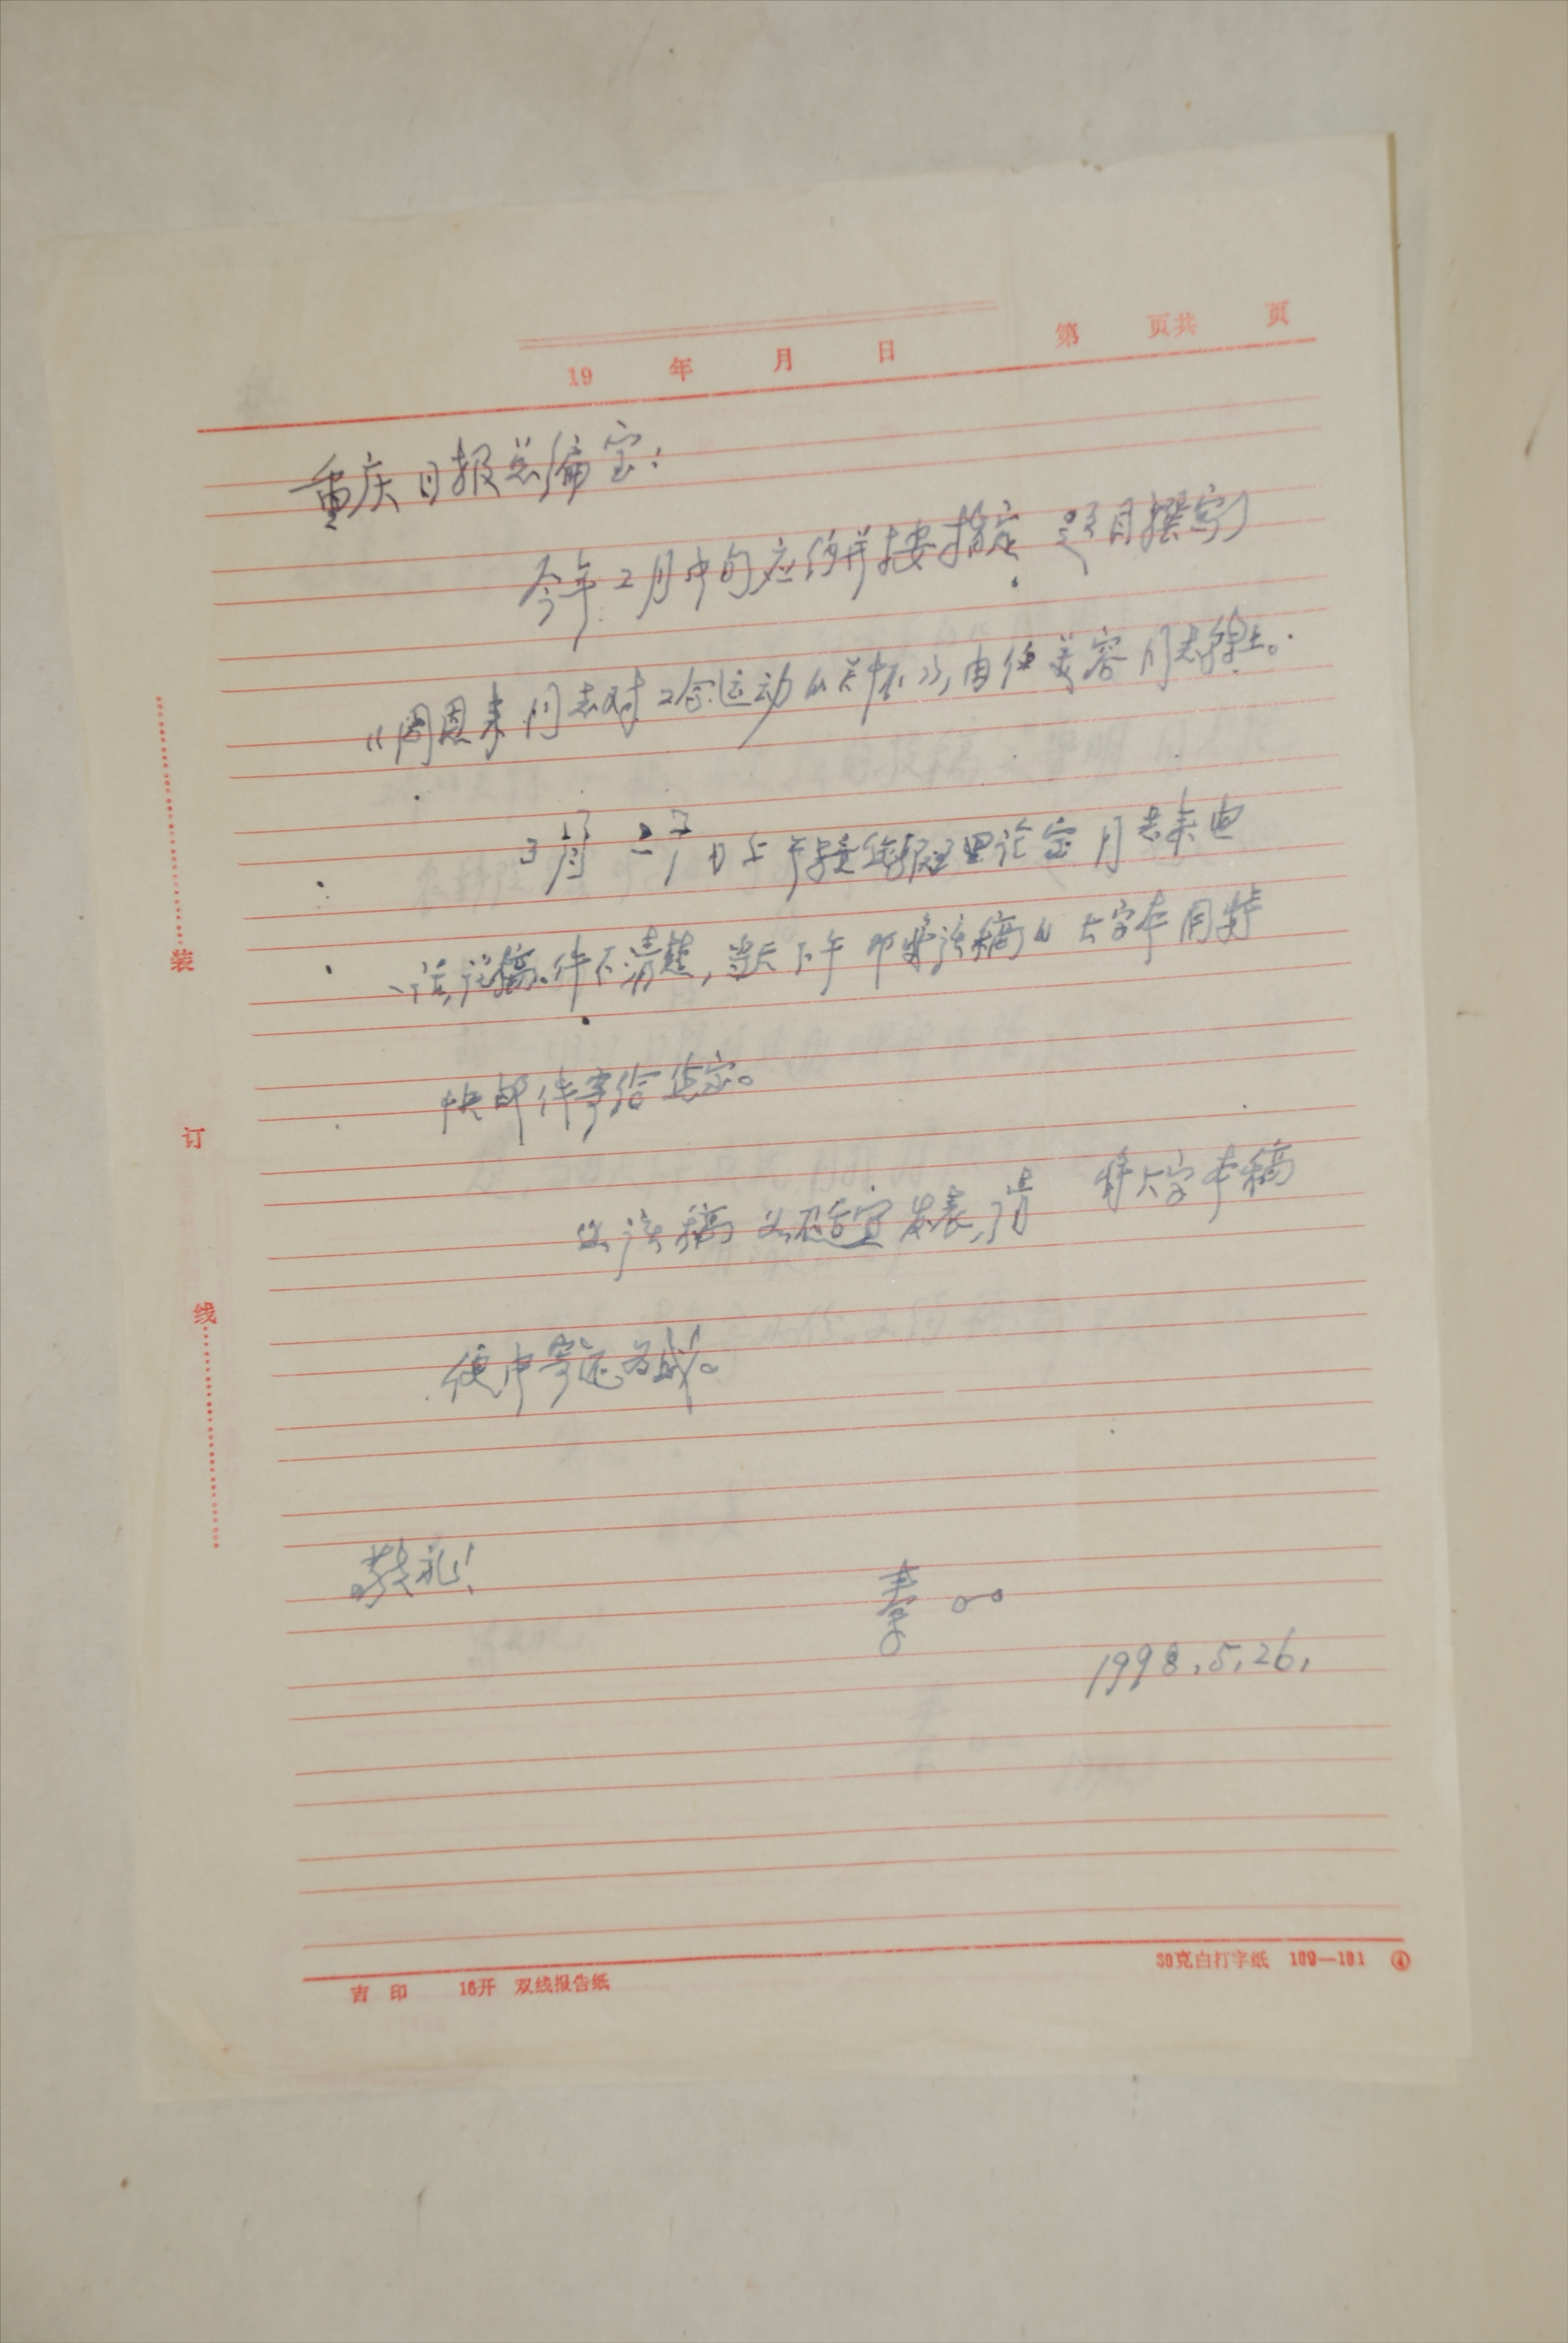 19 年 月 日 第 页共 页
重庆日报总编室:
今年2月中旬应约并按指定题目撰写了
《周恩来同志对工合运动的关怀》,由任美容同志转上。
3月 日上午接贵报理论室同志来电
话,说稿件不清楚,当天下午即将该稿的大字本用特
快邮件寄给贵室。
如该稿 不适宜发表,请 将大字本稿
便中寄还为感。
敬礼!
1998.5.26.
装
订
线
吉 印 16开 双线报告纸
30克白打字纸 109—101 ④